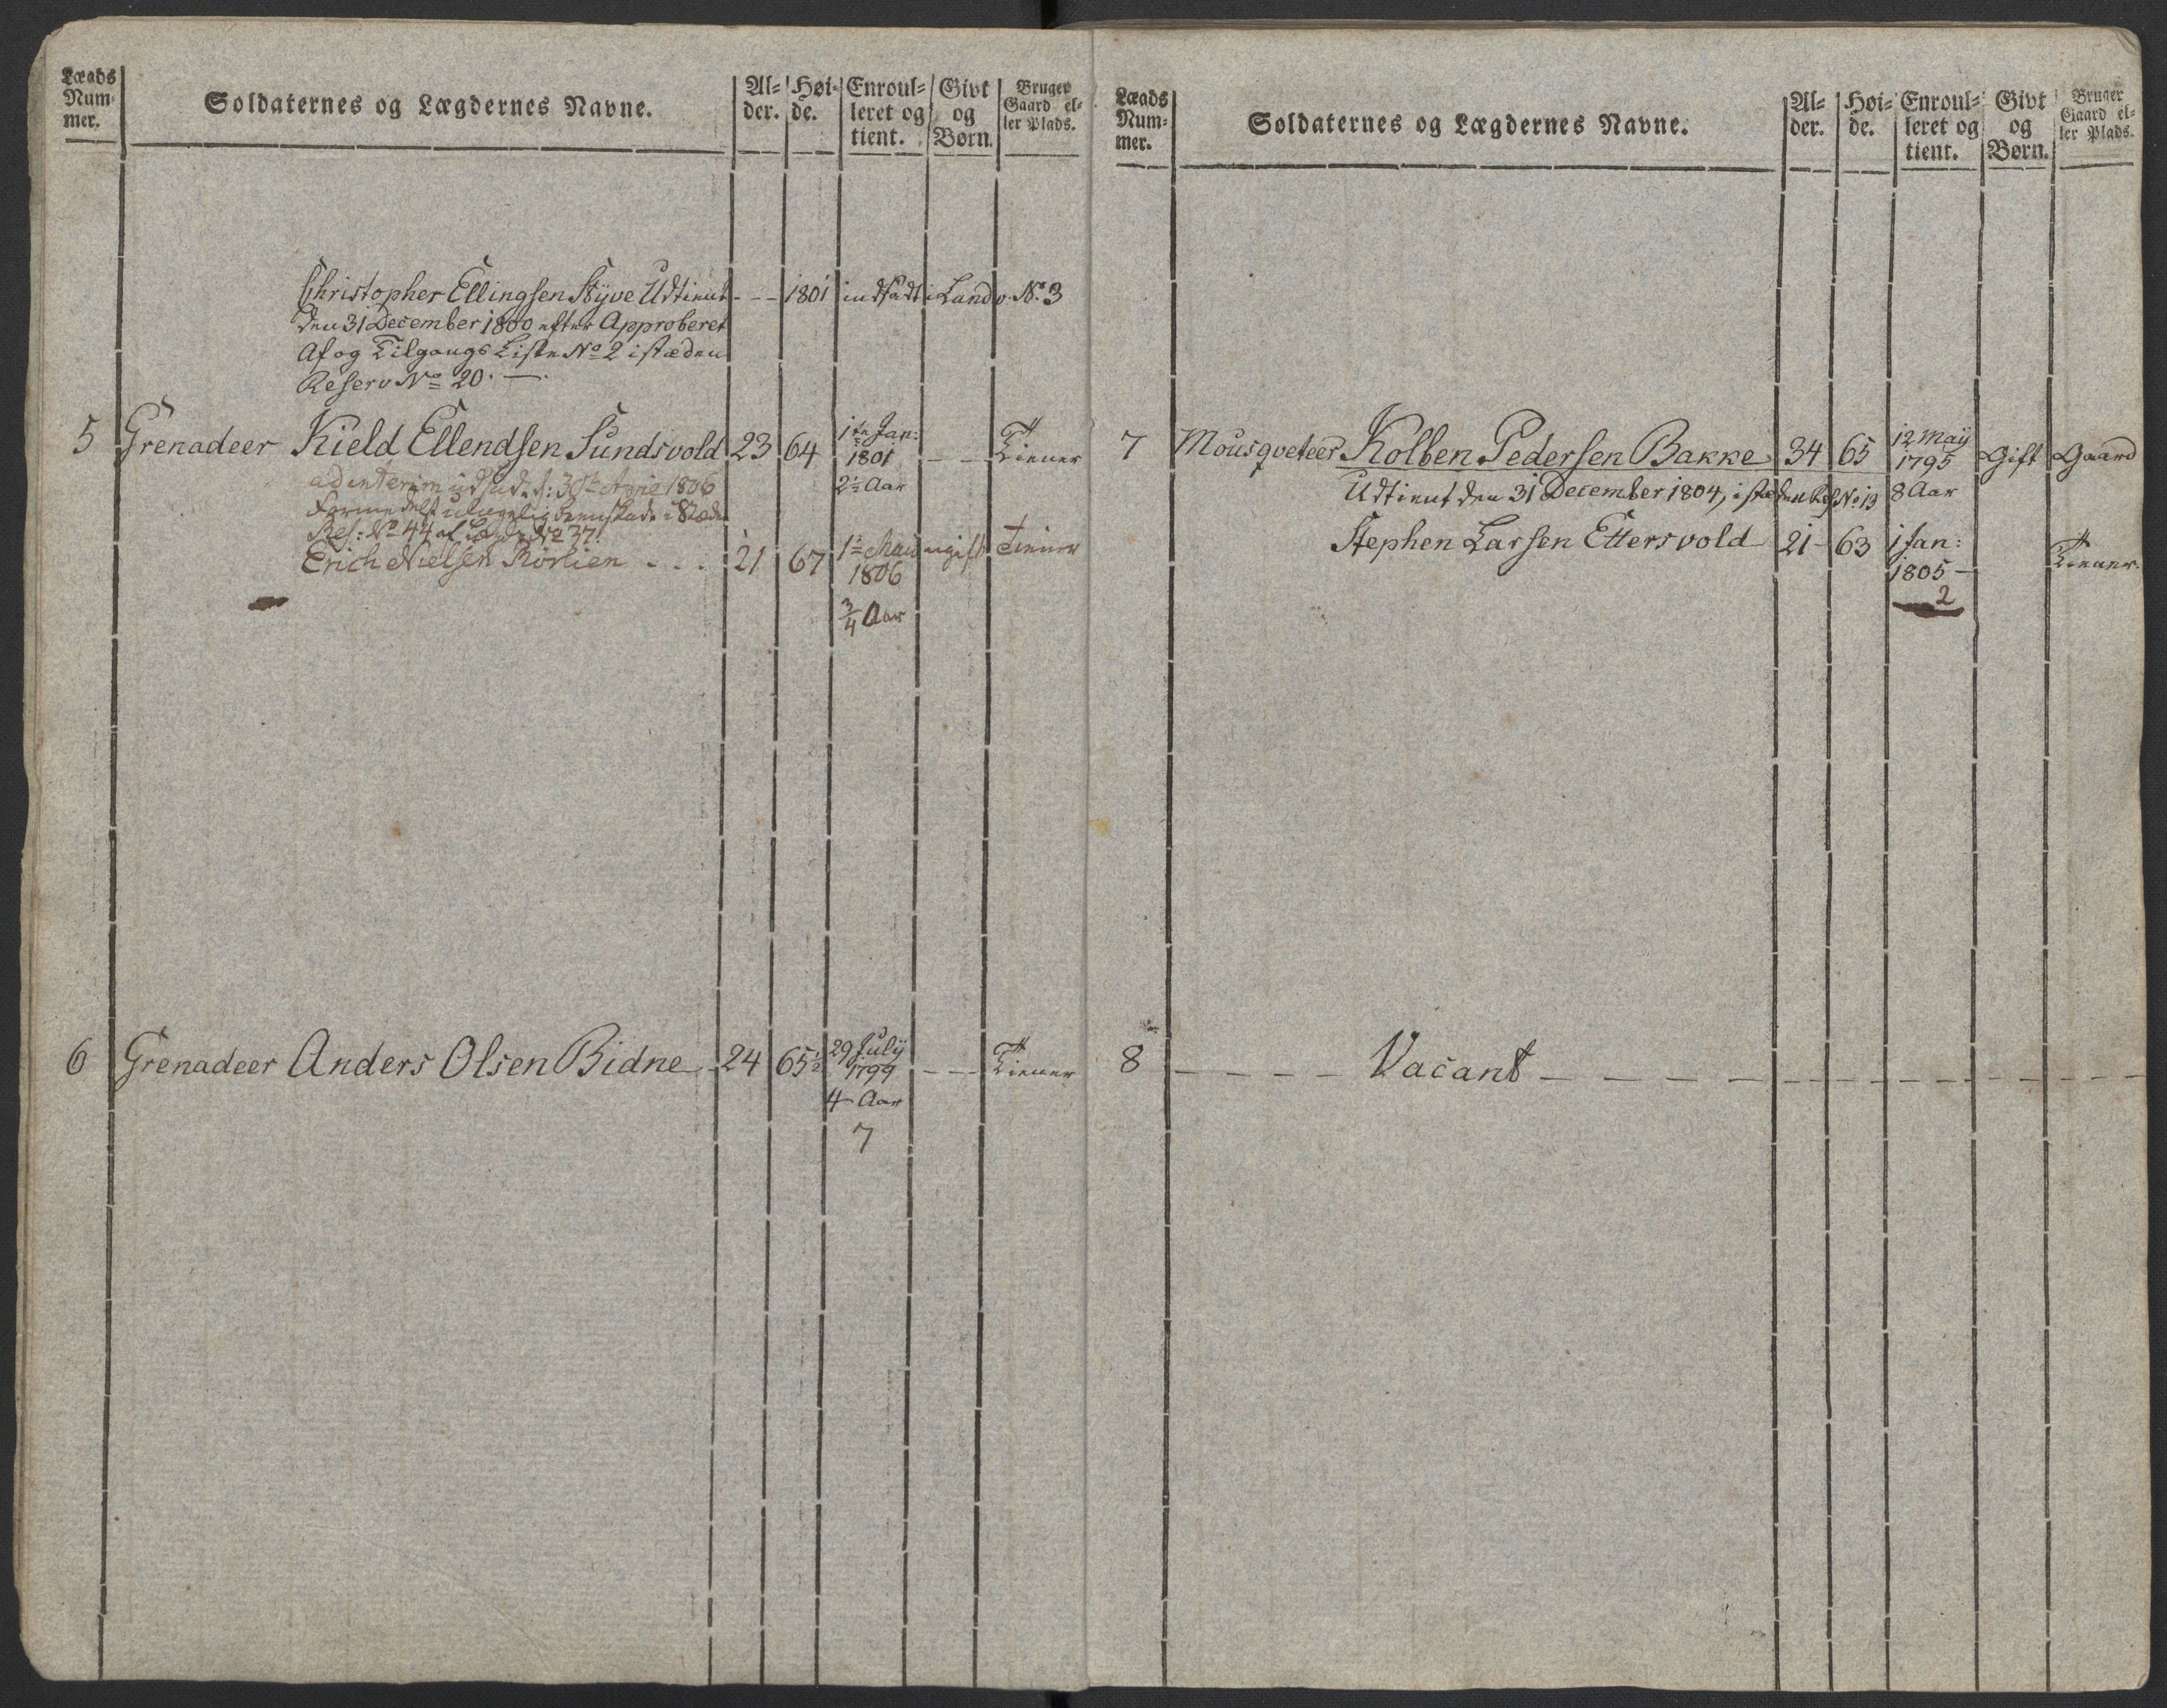 Læads Num- mer.
Soldaternes og Lægdernes Navne.
Al- der.
Høi- de.
Enroul- leret og tient.
Givt og Børn.
Bruger Gaard el- ler Plads.
Christopher Ellingsen Styve Udtient - - - 1801 indsadt i Landv. No. 3
den 31 December 1800 efter Approberet
Af og Tilgangs Liste No 2 istæden
Reserv No 20. —
5 Grenadeer Kield Ellendsen Sundsvold 23 64 1te Jan: 1801 - - Tiener
2½ Aar
ad interim udsadt d: 30te April 1806
Formedelst ulægelig
Res: No 44 af Lægd No 37.
Erich Nielsen Rörlien . . . 21 67 1te Maii 1806 ugift Tiener
¾ Aar
6 Grenadeer Anders Olsen Bidne 24 65½ 29 Julÿ 1799 - - Tiener
4 Aar
7
Læads Num- mer.
Soldaternes og Lægdernes Navne.
Al- der.
Høi- de.
Enroul- leret og tient.
Givt og Børn.
Bruger Gaard el- ler Plads.
7 Mousqveteer Kolben Pedersen Bakke 34 65 12 Maÿ 1795 Gift Gaard
Udtient den 31 December 1804, istæden Res No 19 8 Aar
Stephen Larsen Ettersvold 21 63 1 Jan: 1805 — Tiener.
2
8 - - - - Vacant - - - -